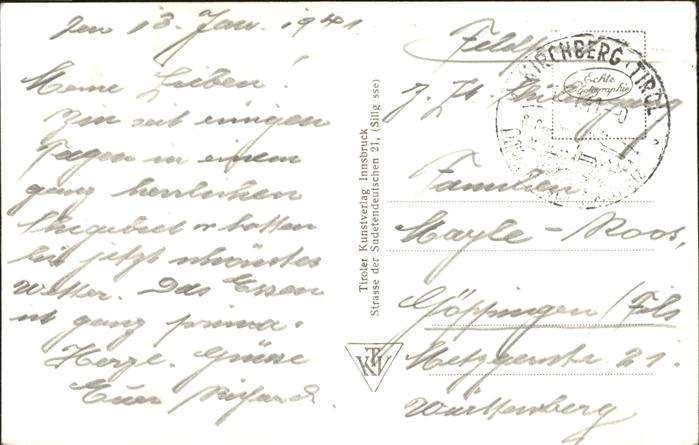 den 13. Jan. 1941
Meine Lieben!
Bin seit einigen
Tagen in einem
ganz herrlichen
Skigebiet u. hatten
bis jetzt schönstes
Wetter. Das Essen
ist ganz prima.
Herzl. Grüsse
Euer Richard.
Tiroler Kunstverlag Innsbruck
Strasse der Sudetendeutschen 21, (Sillg sse)
KTV
Feldpost
z. Zt.
KIRCHBERG (TIROL)
Echte
Photographie
Familien
Mayle-Roos,
Göppingen/Fils
Metzgerstr. 21.
Württemberg